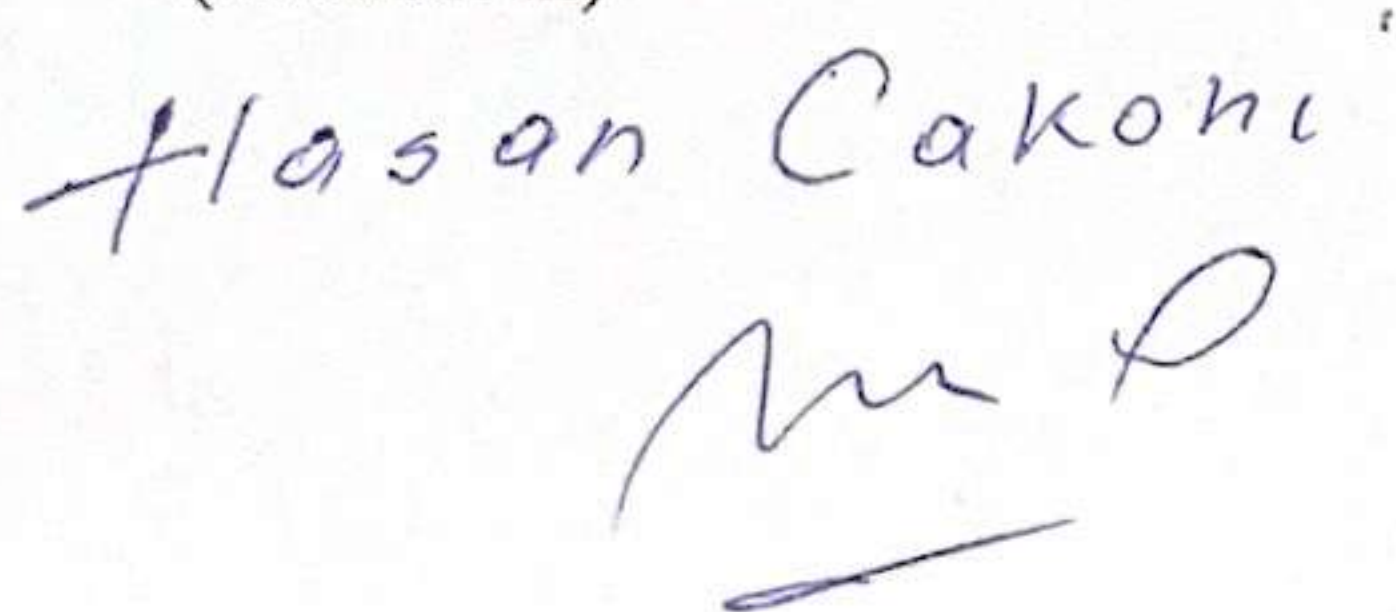 Hasan Cakoni